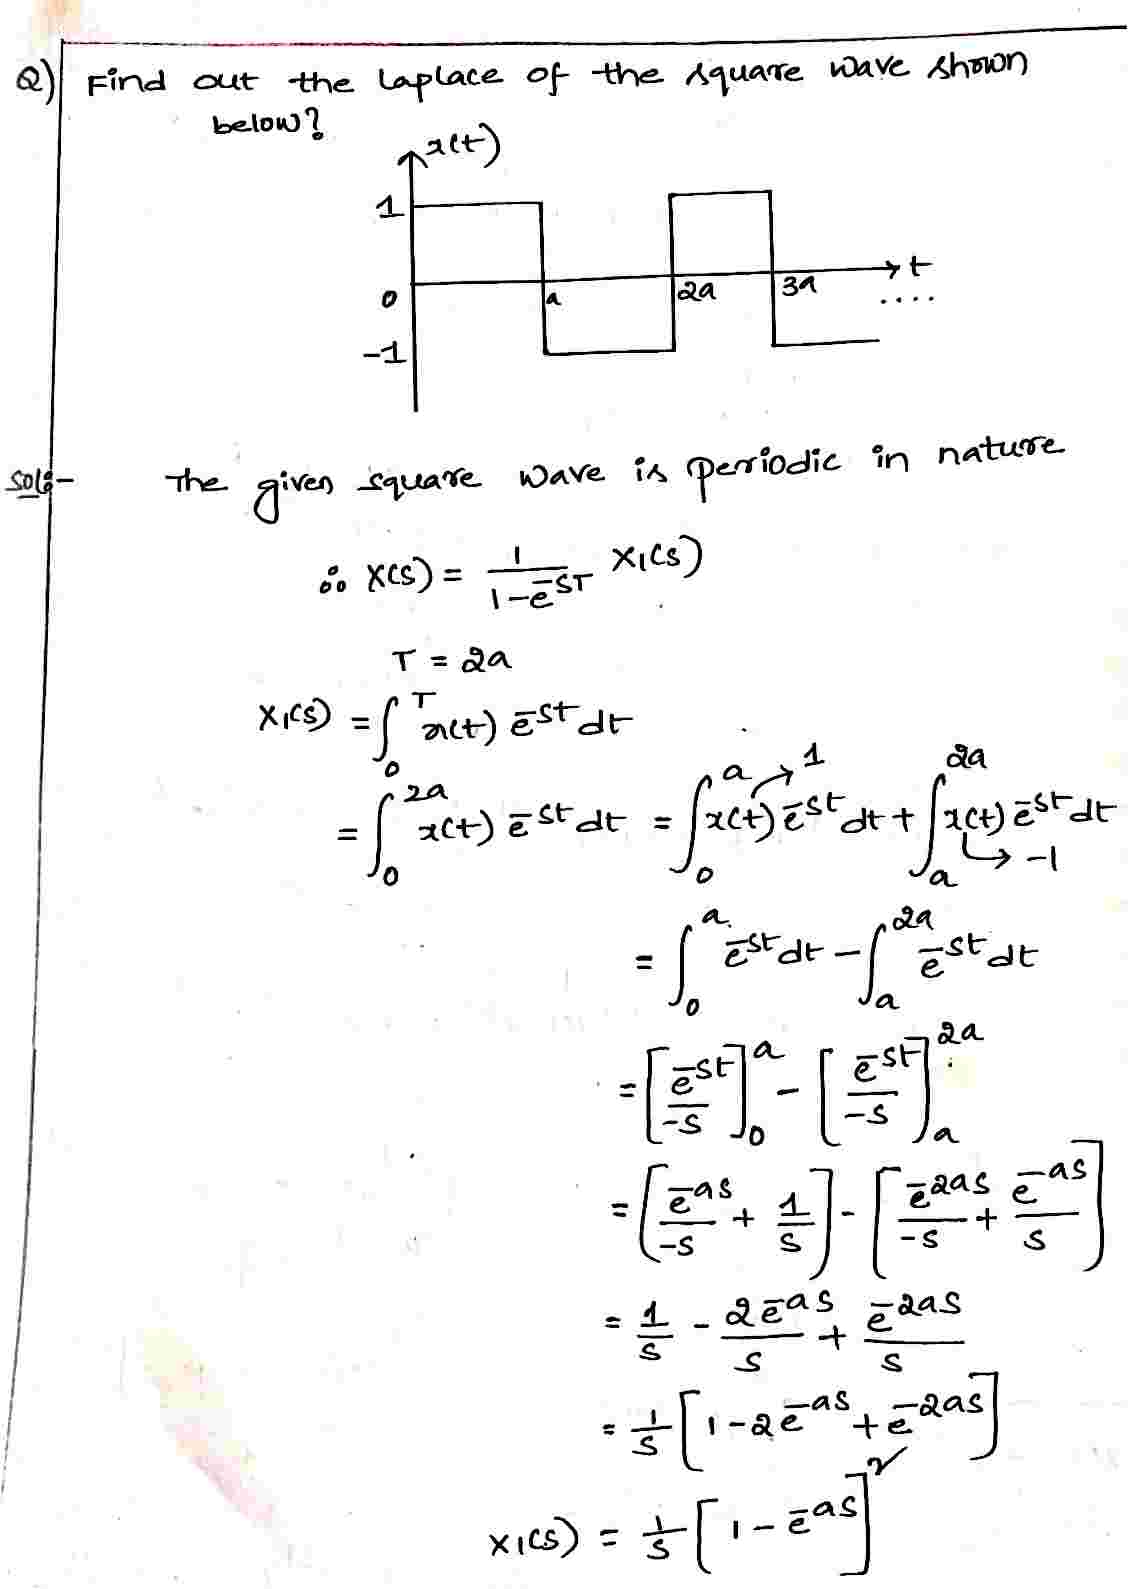 Q) Find out the Laplace of the square wave shown
below?
x(t)
1
0 a 2a 3a t
....
-1
Sol:- The given square wave is periodic in nature
∴ X(s) = 1/(1-e^-sT) X1(s)
T = 2a
X1(s) = ∫_0^T x(t) e^-st dt
= ∫_0^2a x(t) e^-st dt = ∫_0^a x(t)→1 e^-st dt + ∫_a^2a x(t)→-1 e^-st dt
= ∫_0^a e^-st dt - ∫_a^2a e^-st dt
= [e^-st/-s]_0^a - [e^-st/-s]_a^2a
= [e^-as/-s + 1/s] - [e^-2as/-s + e^-as/s]
= 1/s - 2e^-as/s + e^-2as/s
= 1/s [1-2e^-as + e^-2as]
X1(s) = 1/s [1-e^-as]^2